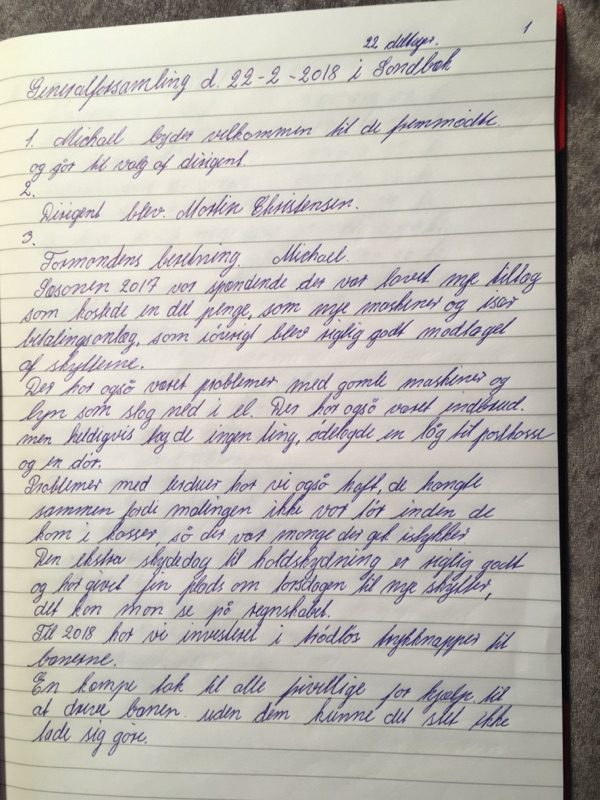 1
22 deltager.
Generalforsamling d. 22-2-2018 i Søndbæk
1. Michael byder velkommen til de fremmødte.
og går til valg af dirigent.
2.
Dirigent blev Martin Christensen.
3.
Formandens beretning. Michael.
Sæsonen 2017 var spændende der var lavet nye tiltag
som kostede en del penge, som nye maskiner og især
betalingsanlæg, som iøvrigt blev rigtig godt modtaget
af skytterne.
Der har også været problemer med gamle maskiner og
lyn som slog ned i el. Der har også været indbrud.
men heldigvis tog de ingen ting, ødelagde en låg til postkasse
og en dør.
Problemer med lerduer har vi også haft, de hængte
sammen fordi malingen ikke var tør inden de
kom i kasser, så der var mange der gik i stykker
Den ekstra skydedag til holdskydning er rigtig godt
og har givet fin plads om torsdagen til nye skytter,
det kan man se på regnskabet.
Til 2018 har vi investeret i trådløs trykknapper til
banerne.
En kæmpe tak til alle frivillige for hjælp til
at drive banen. uden dem kunne det slet ikke
lade sig gøre.